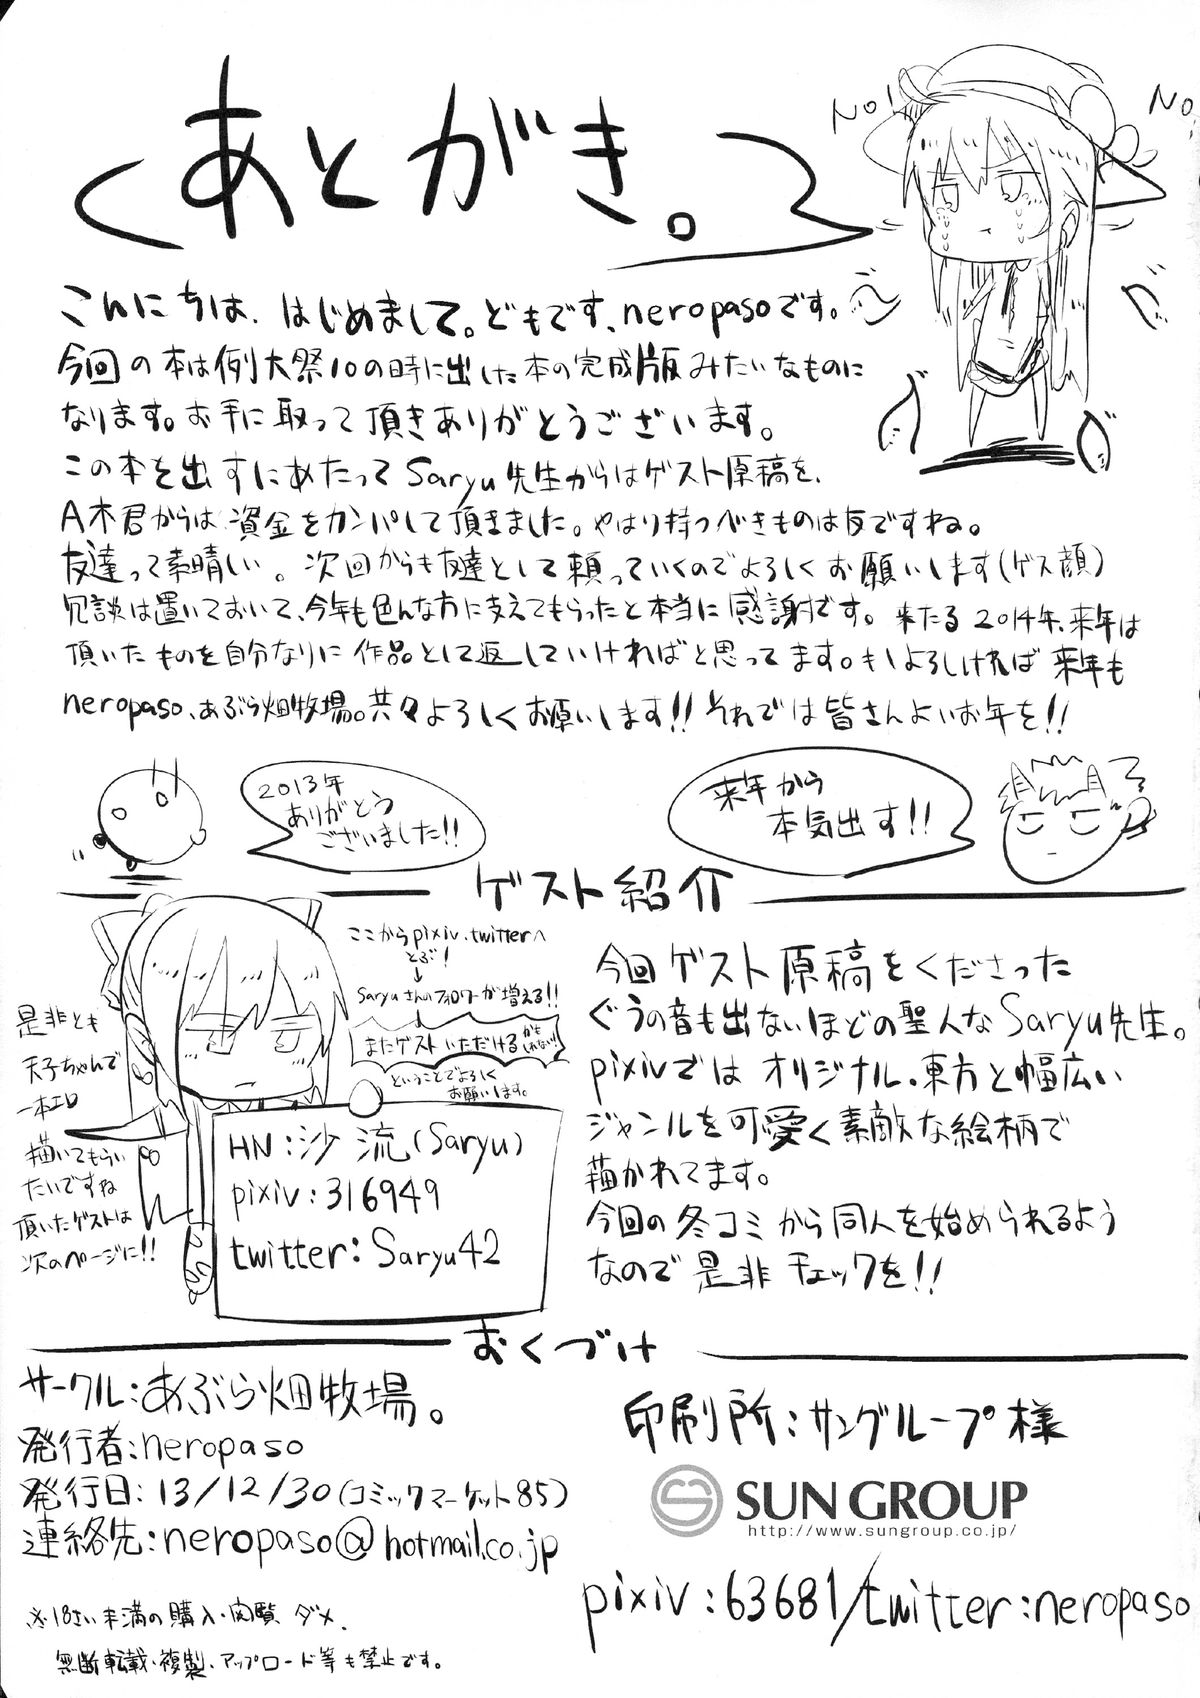 あとがき。
No!
No!
こんにちは、はじめまして。どもです、neropasoです。
今回の本は例大祭10の時に出した本の完成版みたいなものに
なります。お手に取って頂きありがとうございます。
この本を出すにあたってSaryu先生からはゲスト原稿を、
A木君からは資金をカンパして頂きました。やはり持つべきものは友ですね。
友達って素晴しい。次回からも友達として頼っていくのでよろしくお願いします(ゲス顔)
冗談は置いておいて、今年も色んな方に支えてもらったと本当に感謝です。来たる2014年、来年は
頂いたものを自分なりに作品として返していければと思ってます。もしよろしければ来年も
neropaso、あぶら畑牧場。共々よろしくお願いします!!それでは皆さんよいお年を!!
2013年
ありがとう
ございました!!
来年から
本気出す!!
ゲスト紹介
ここからpixiv、twitterへ
とぶ!
↓
Saryuさんのフォロワーが増える!!
↓
またゲストいただける
かもしれない!
ということでよろしく
お願いします。
是非とも
天子ちゃんで
一本エロ
描いてもらい
たいですね
頂いたゲストは
次のページに!!
HN:沙流(Saryu)
pixiv:316949
twitter:Saryu42
今回ゲスト原稿をくださった
ぐうの音も出ないほどの聖人なSaryu先生。
pixivではオリジナル、東方と幅広い
ジャンルを可愛く素敵な絵柄で
描かれてます。
今回の冬コミから同人を始められるよう
なので是非チェックを!!
おくづけ
サークル:あぶら畑牧場。
発行者:neropaso
発行日:13/12/30(コミックマーケット85)
連絡先:neropaso@hotmail.co.jp
※18さい未満の購入・閲覧ダメ、
無断転載、複製、アップロード等も禁止です。
印刷所:サングループ様
SUN GROUP
http://www.sungroup.co.jp/
pixiv:63681/twitter:neropaso